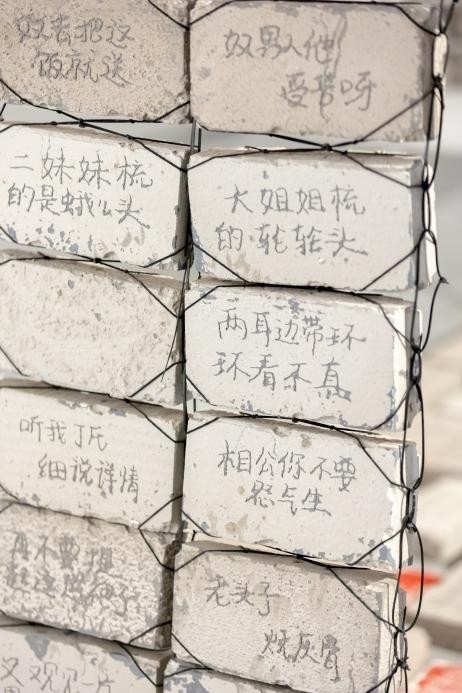 奴去把这
饭就送
奴男人他
受苦呀
二妹妹梳
的是蛾么头
大姐姐梳
的轮轮头
两耳边带环
环看不真
听我
细说详情
相公你不要
怒气生
再不要想
老头子
又观见一片